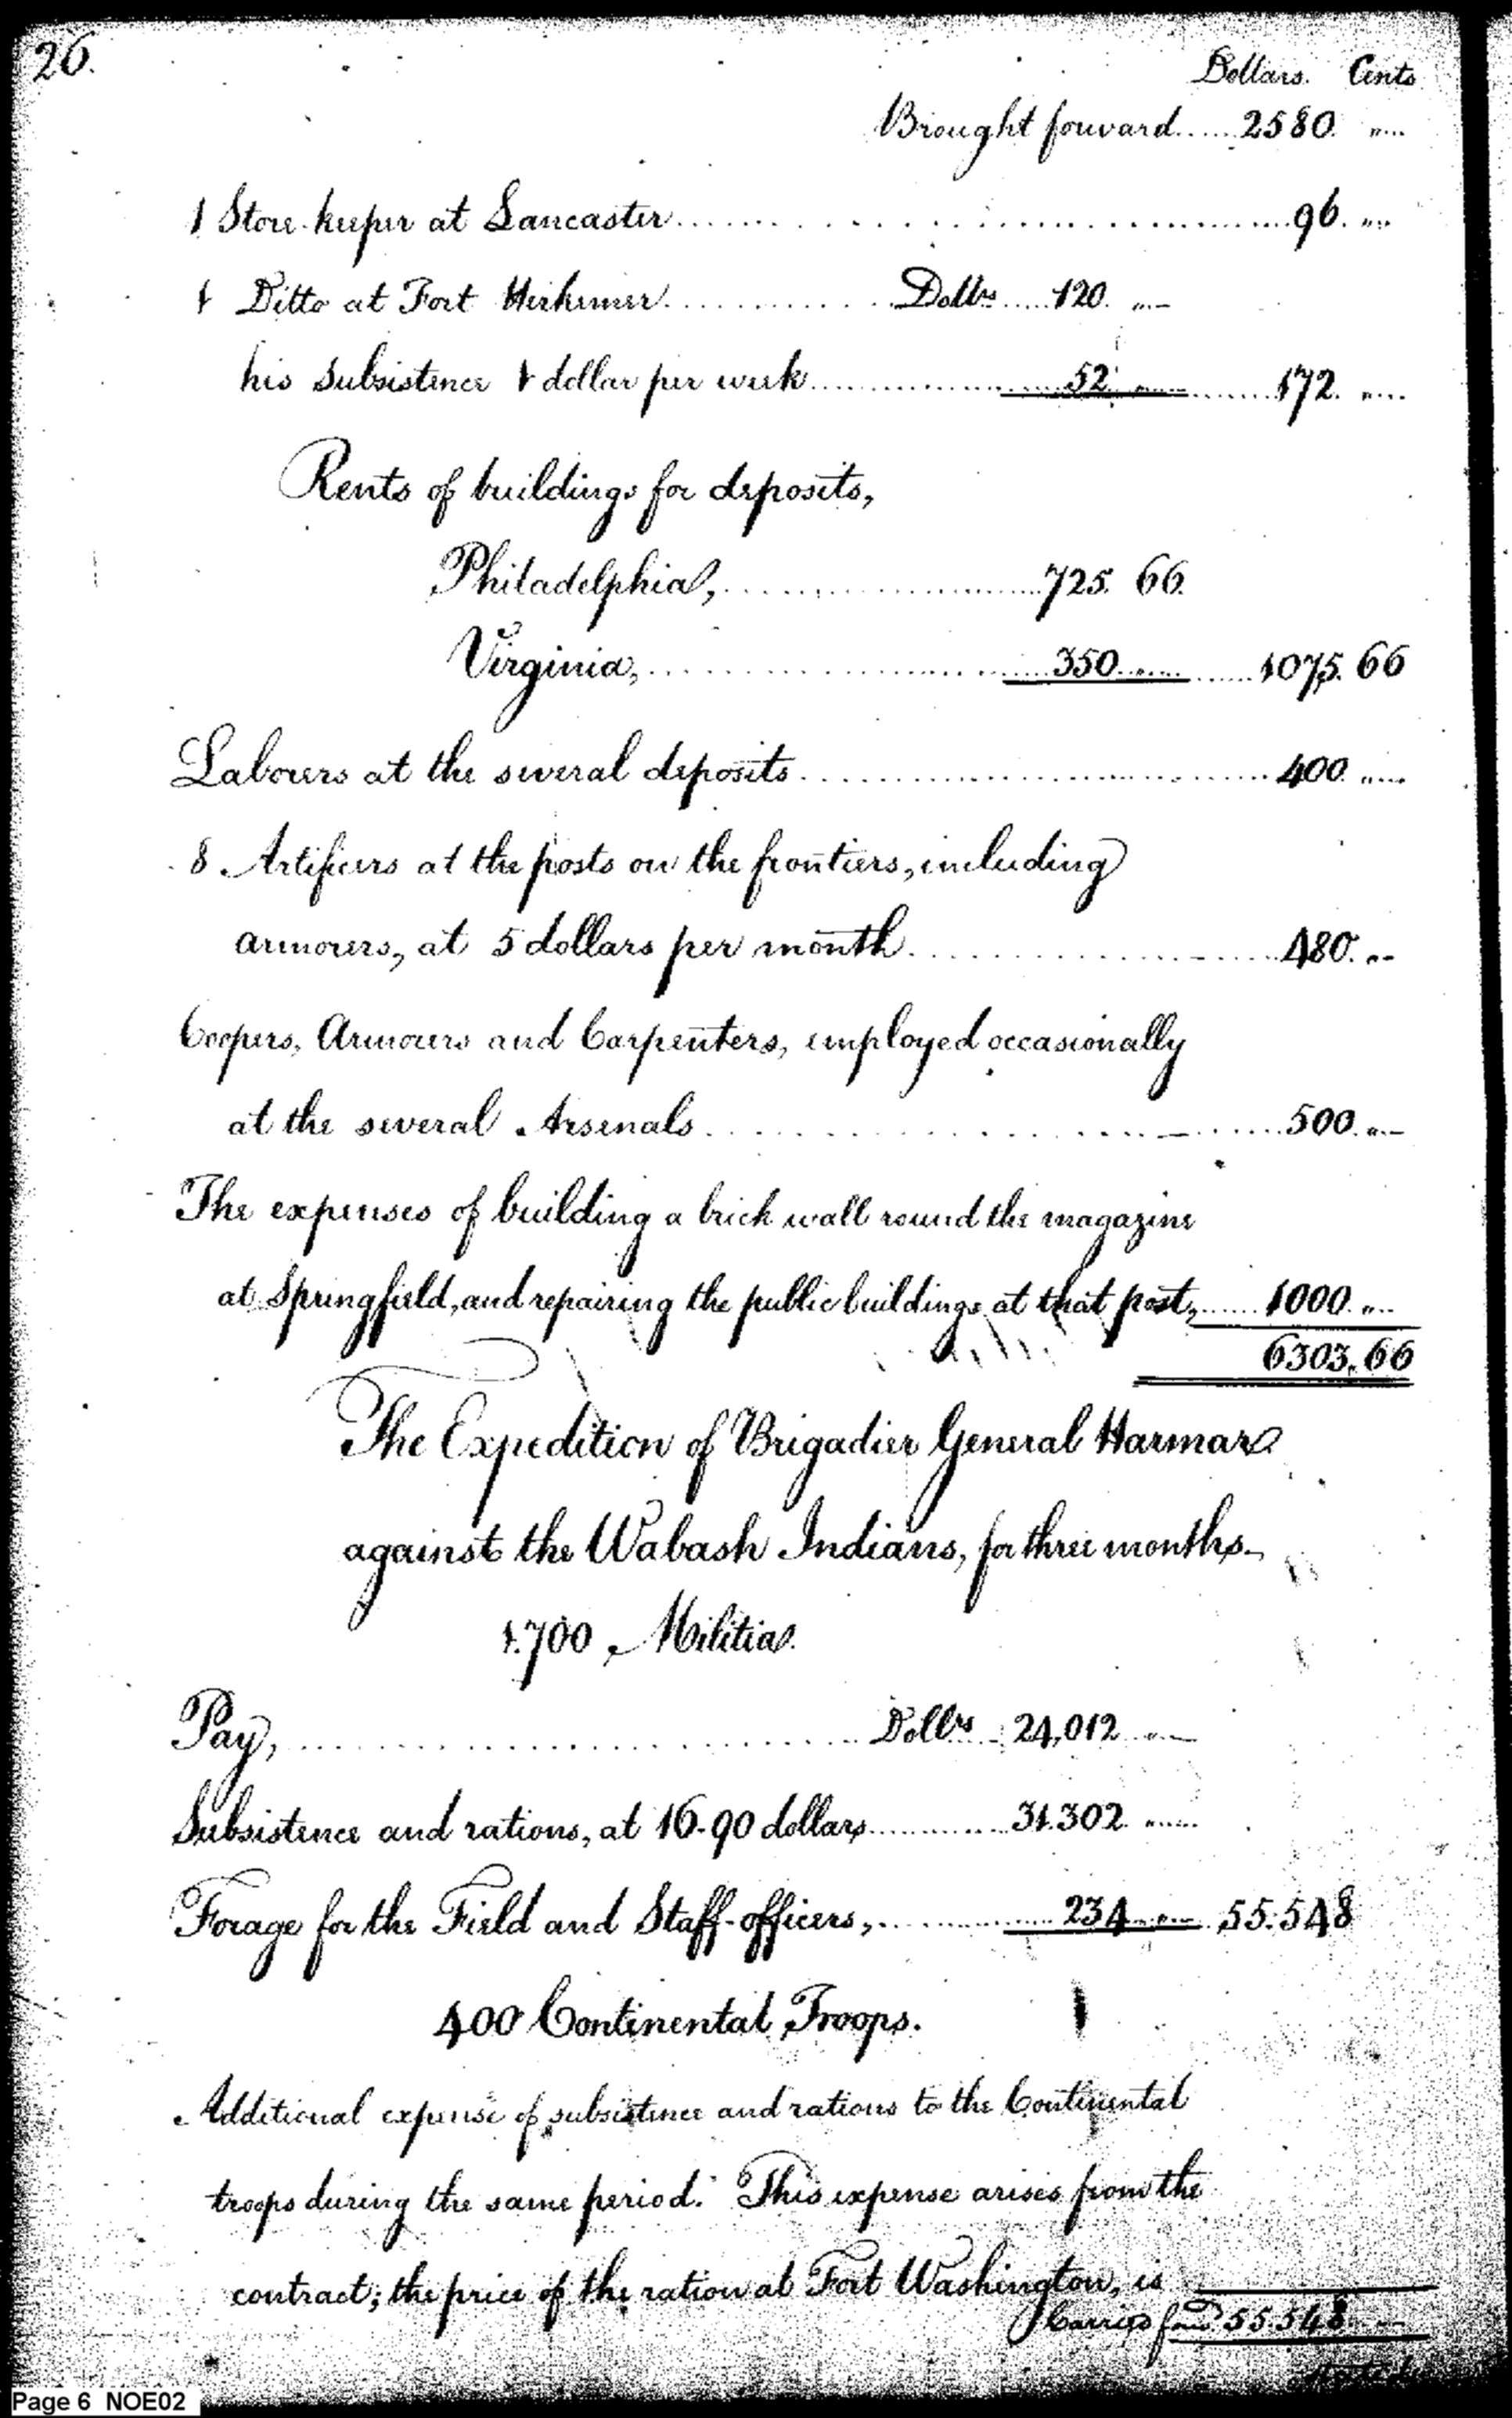 26.
Dollars. Cents
Brought forward......2580. "....
1 Store-keeper at Lancaster....................96. "...
1 Ditto at Fort Herkimer............Dollrs.....120. "...
his subsistence 1 dollar per week..............52. "............172. "....
Rents of buildings for deposits,
Philadelphia,....................725. 66.
Virginia,....................350..".........1075. 66
Labourers at the several deposits....................400. "....
8 Artificers at the posts on the frontiers, including
armorers, at 5 dollars per month....................480. "..
Coopers, Armourers and Carpenters, employed occasionally
at the several Arsenals....................500. "..
The expenses of building a brick wall round the magazine
at Springfield, and repairing the public buildings at that post,......1000. "..
6303. 66
The Expedition of Brigadier General Harmar
against the Wabash Indians, for three months.
1.700 Militia.
Pay,....................Dollrs. 24,012 "..
Subsistence and rations, at 16-90 dollars............31.302. "....
Forage for the Field and Staff-officers,............234 "....55.548
400 Continental Troops.
Additional expense of subsistence and rations to the Continental
troops during the same period. This expense arises from the
contract; the price of the ration at Fort Washington, is
Carried ford. 55.548. "..
Page 6 NOE02